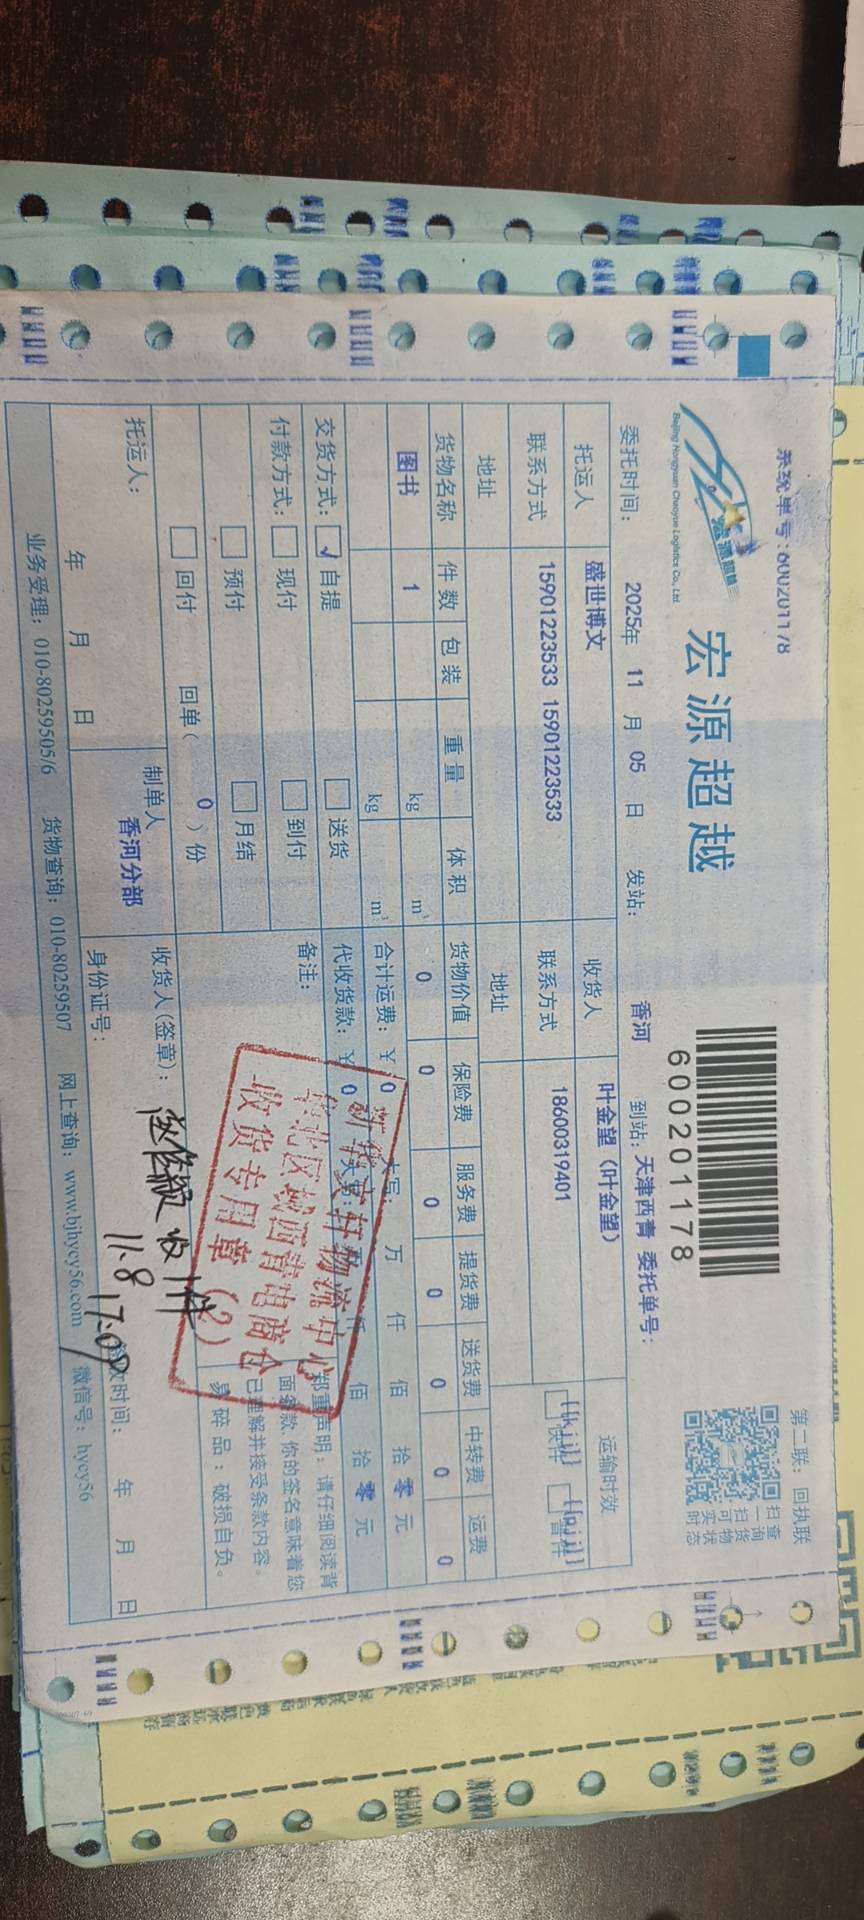 系统单号:600201178
宏源超越
Beijing Hongyuan Chaoyue Logistics Co., Ltd.
600201178
第二联：回执联
扫一扫可实时
查询货物状态
委托时间： 2025年 11 月 05 日 发站： 香河 到站：天津西青 委托单号：
托运人 盛世博文 收货人 叶金望（叶金望） 运输时效
联系方式 15901223533 15901223533 联系方式 18600319401 [[kjj]]快件 [[pjj]]普件
地址 地址
货物名称 件数 包装 重量 体积 货物价值 保险费 服务费 提货费 送货费 中转费 运费
图书 1 kg m³ 0 0 0 0 0 0 0
kg m³ 合计运费：￥ 0 大写： 万 仟 佰 拾 零 元
交货方式： √ 自提 送货 代收货款：￥ 0 大写： 万 仟 佰 拾 零 元
付款方式： 现付 到付 备注：
预付 月结
回付 回单（ 0 ）份
郑重声明：请仔细阅读背
面条款，你的签名意味着您
已理解并接受条款内容。
易碎品：破损自负。
新华文轩物流中心
华北区域西青电商仓
收货专用章（2）
托运人： 制单人 收货人(签章)： 收1件
年 月 日 香河分部 身份证号： 11.8 17:09 时间： 年 月 日
业务受理：010-80259505/6 货物查询：010-80259507 网上查询：www.bjhycy56.com 微信号：hycy56